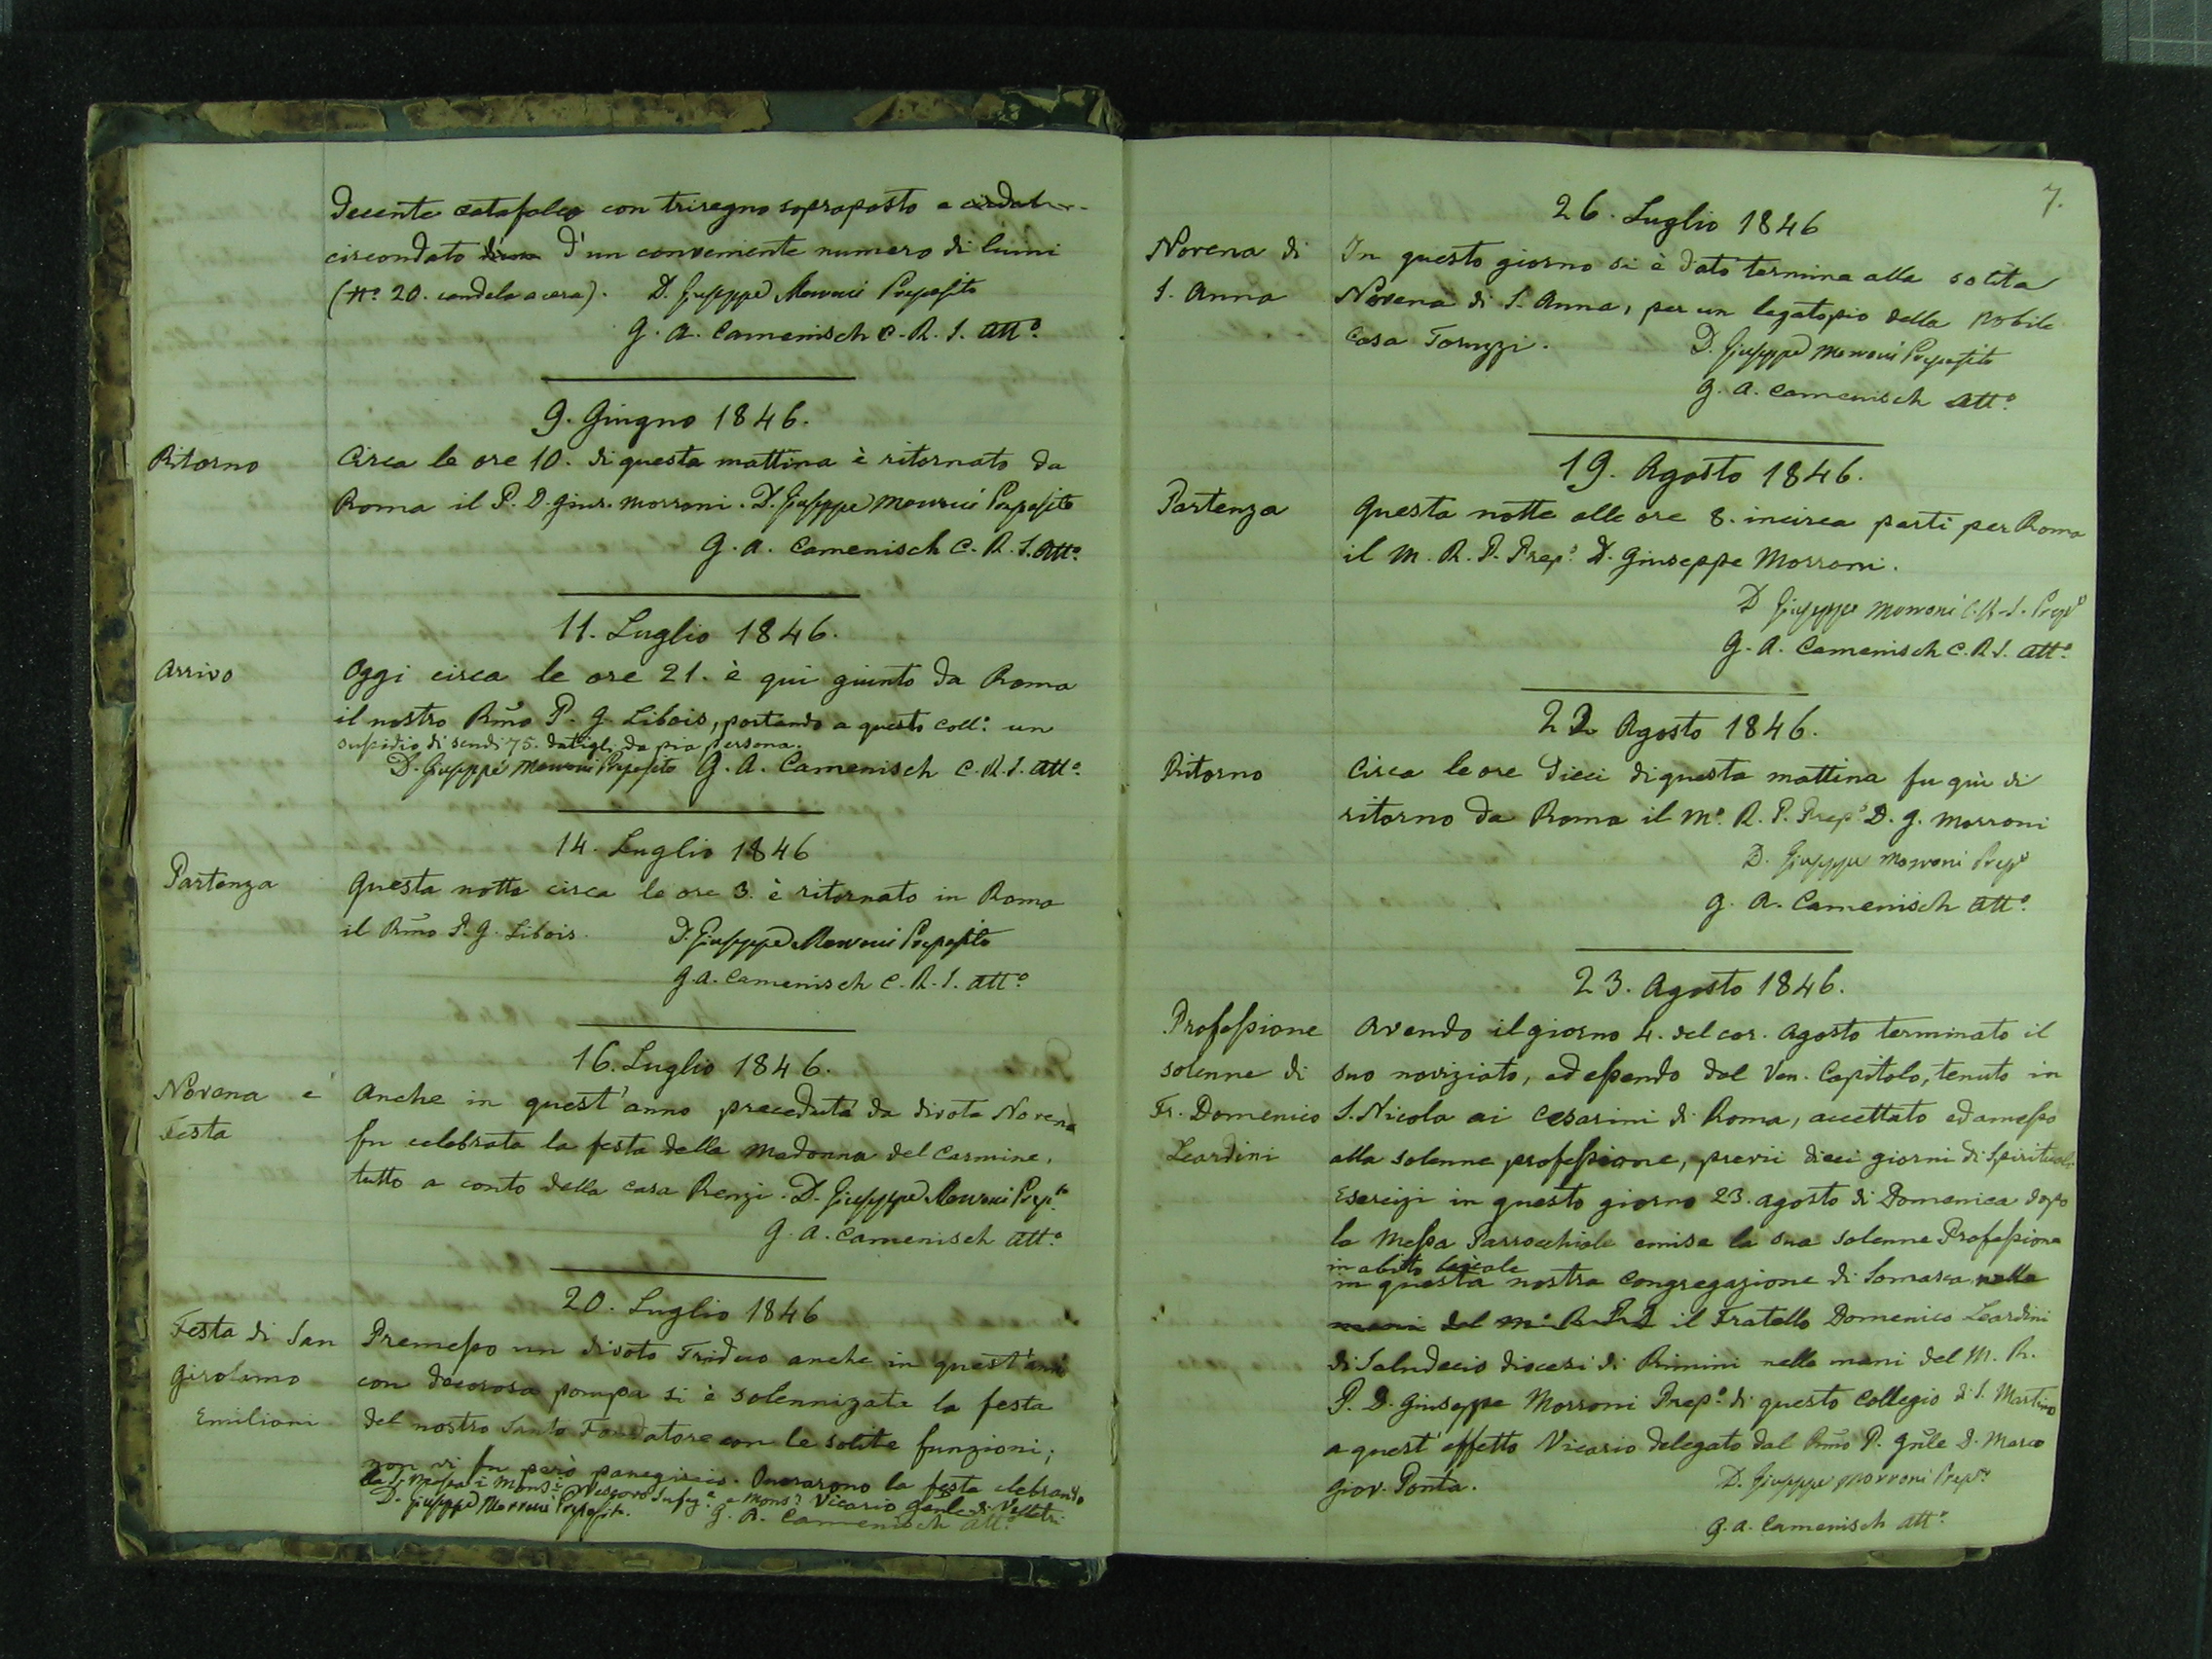 decente catafalco con triregno soprapposto e
circondato d'un conveniente numero di lumi
(N.º 20. candele a cera). D. Giuseppe Morroni Preposito
G. A. Camenisch C. R. S. Att.º
9. Giugno 1846.
Ritorno
Circa le ore 10. di questa mattina è ritornato da
Roma il P. D. Gius. Morroni. D. Giuseppe Morroni Preposito
G. A. Camenisch C. R. S. Att.º
11. Luglio 1846.
Arrivo
Oggi circa le ore 21. è qui giunto da Roma
il nostro Rmo P. G. Libois, portando a questo Coll.º un
sussidio di scudi 75. datigli da pia persona.
D. Giuseppe Morroni Preposito G. A. Camenisch C. R. S. Att.º
14. Luglio 1846
Partenza
Questa notte circa le ore 3. è ritornato in Roma
il Rmo P. G. Libois. D. Giuseppe Morroni Preposito
G. A. Camenisch C. R. S. Att.º
16. Luglio 1846.
Novena e
Festa
Anche in quest'anno preceduta da divota Novena
fu celebrata la festa della Madonna del Carmine,
tutto a conto della casa Renzi. D. Giuseppe Morroni Prep.to
G. A. Camenisch Att.º
20. Luglio 1846
Festa di San
Girolamo
Emiliani
Premesso un divoto Triduo anche in quest'anno
con decorosa pompa si è solennizata la festa
del nostro Santo Fondatore con le solite funzioni;
non vi fu però panegirico. Onorarono la festa celebrando
la S. Messa i Mons.i Vescovo Suffrag.º e Mons.r Vicario Genle di Velletri
D. Giuseppe Morroni Preposito. G. A. Camenisch Att.º
7.
26. Luglio 1846
Novena di
S. Anna
In questo giorno si è dato termine alla solita
Novena di S. Anna, per un legato pio della nobile
Casa Toruzzi. D. Giuseppe Morroni Preposito
G. A. Camenisch Att.º
19. Agosto 1846.
Partenza
Questa notte alle ore 8. incirca partì per Roma
il M. R. P. Prep.º D. Giuseppe Morroni.
D. Giuseppe Morroni C. R. S. Prep.º
G. A. Camenisch C. R. S. Att.º
22 Agosto 1846.
Ritorno
Circa le ore dieci di questa mattina fu quì di
ritorno da Roma il M.º R. P. Prep.º D. G. Morroni
D. Giuseppe Morroni Prep.º
G. A. Camenisch Att.º
23. Agosto 1846.
Professione
solenne di
Fr. Domenico
Leardini
Avendo il giorno 4. del cor. Agosto terminato il
suo noviziato, ed essendo dal Ven. Capitolo, tenuto in
S. Nicola ai Cesarini di Roma, accettato ed amesso
alla solenne professione, previi dieci giorni di Spirituali
Esercizi in questo giorno 23. agosto di Domenica dopo
la Messa Parrocchiale emise la sua solenne Professione
in abito laicale
in questa nostra Congregazione di Somasca nelle
mani del M. R. P. D. il Fratello Domenico Leardini
di Saludecio diocesi di Rimini nelle mani del M. R.
P. D. Giuseppe Morroni Prep.º di questo Collegio di S. Martino
a quest'effetto Vicario delegato dal Rmo P. Gnle D. Marco
Giov. Ponta. D. Giuseppe Morroni Prep.º
G. A. Camenisch Att.º